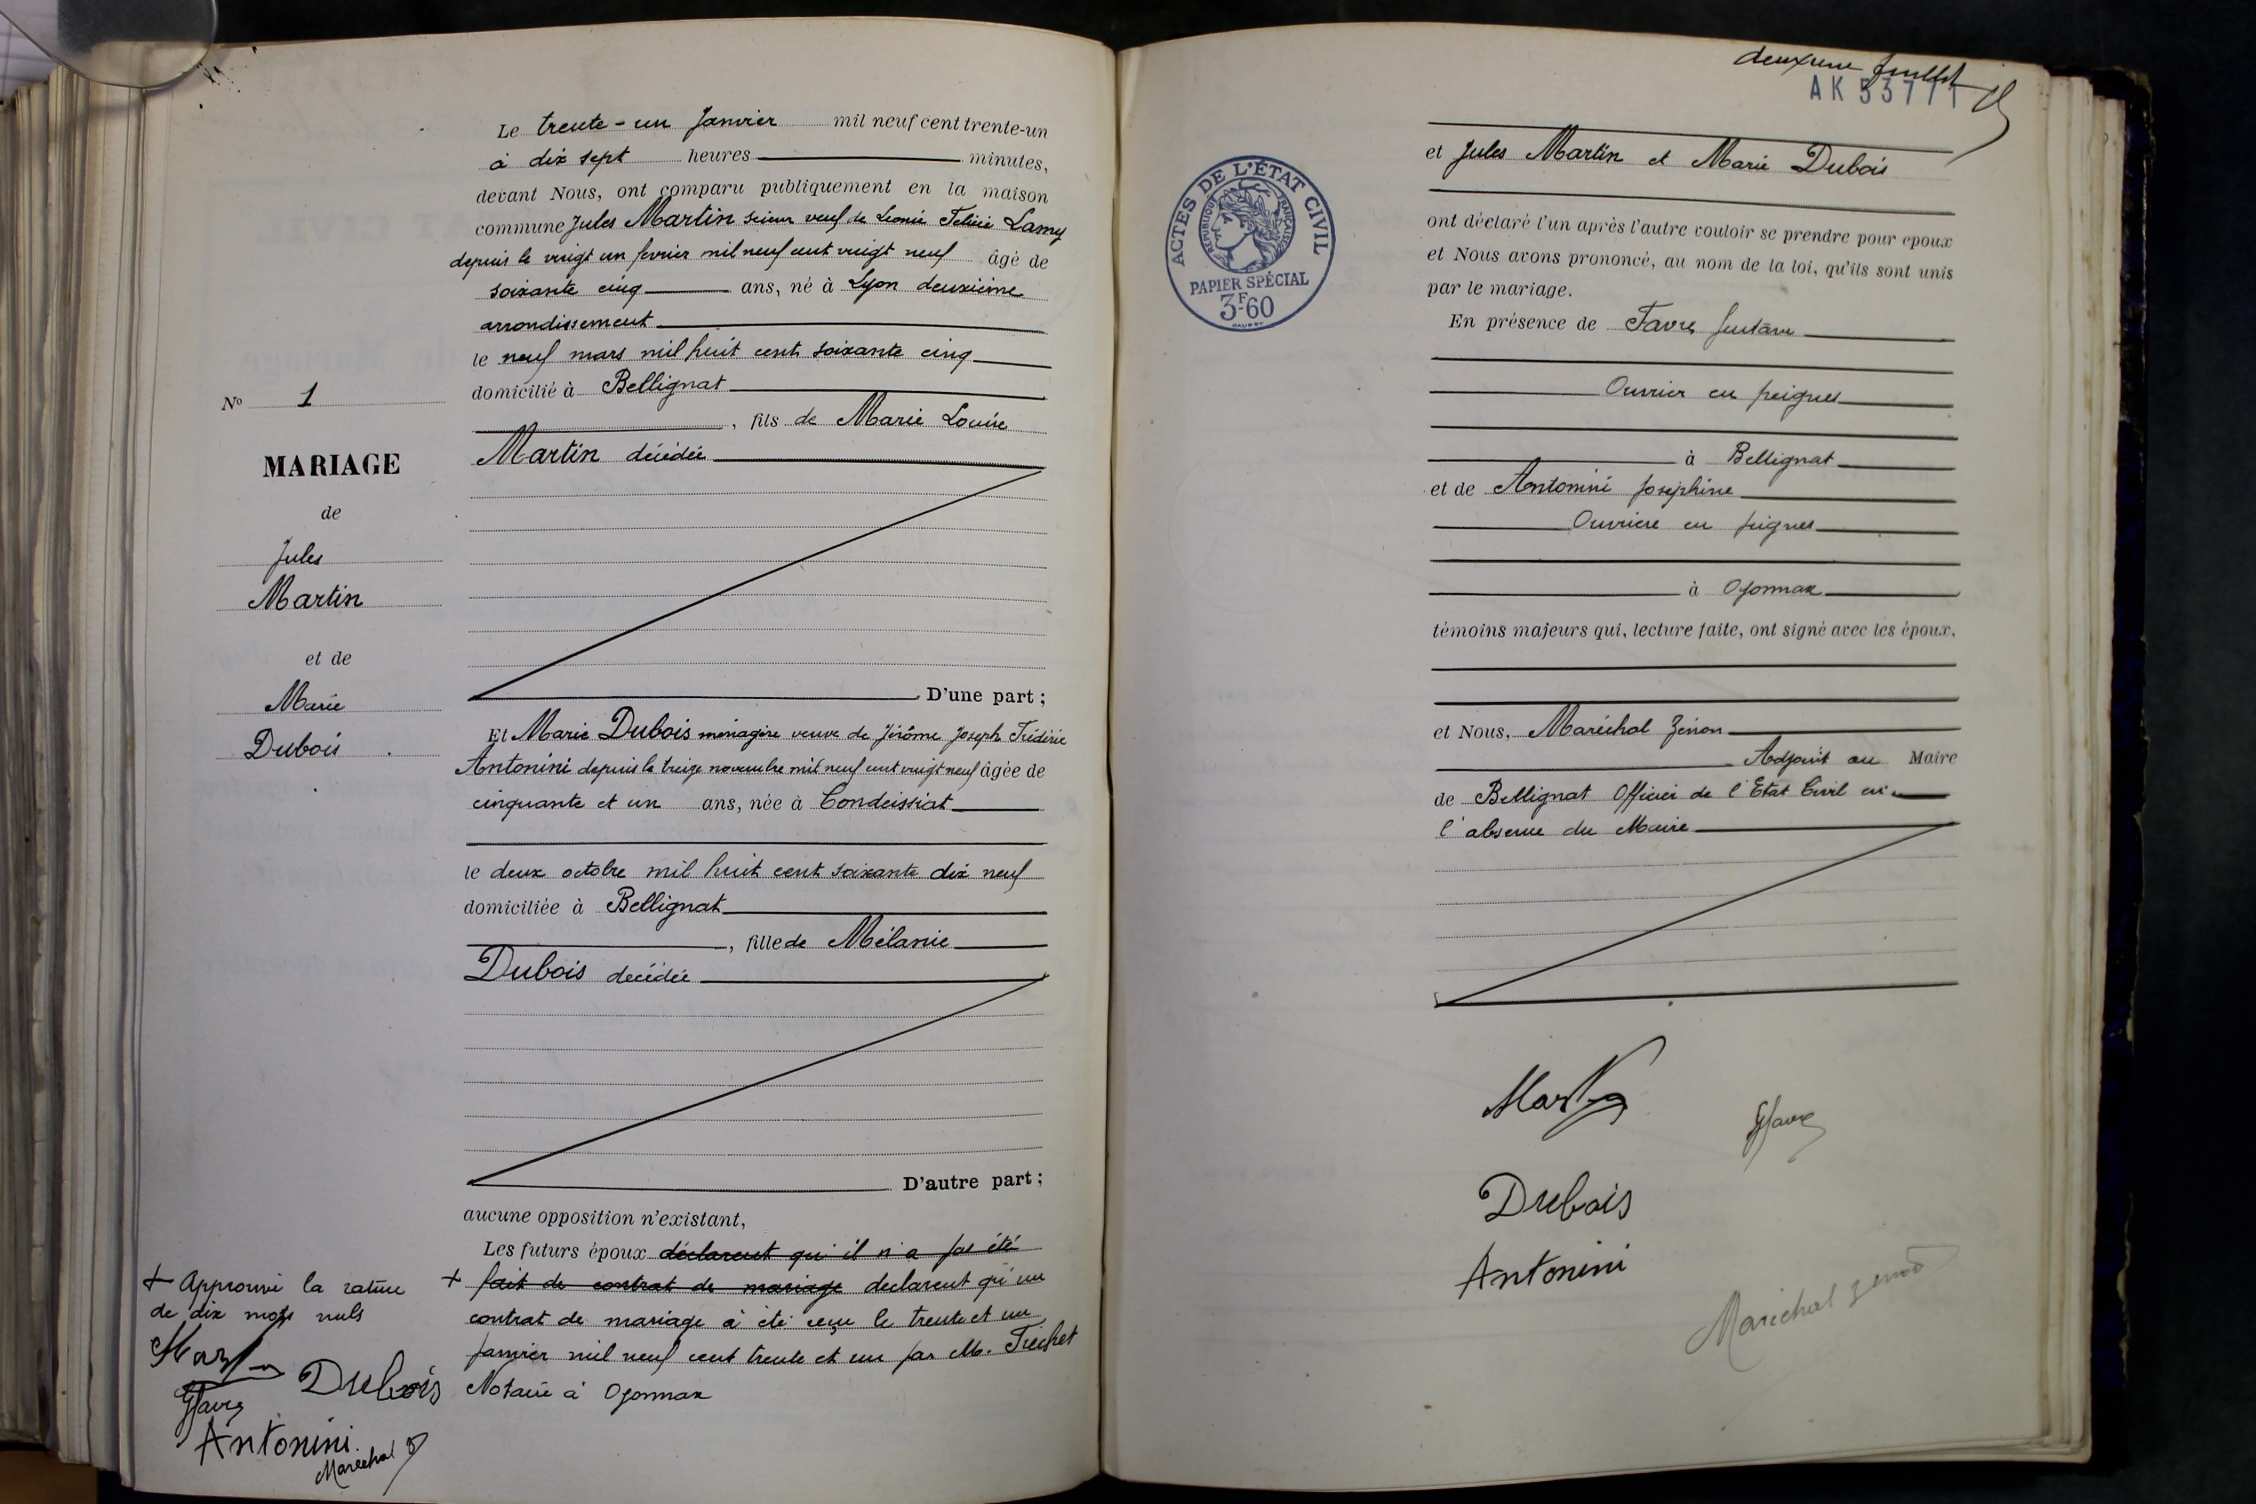 Le trente-un Janvier mil neuf cent trente-un
à dix sept heures minutes,
devant Nous, ont comparu publiquement en la maison
commune Jules Martin scieur veuf de Leonie Felicie Lamy
depuis le vingt un fevrier mil neuf cent vingt neuf âgé de
soixante cinq ans, né à Lyon deuxième
arrondissement
le neuf mars mil huit cent soixante cinq
domicilié à Bellignat
No 1
, fils de Marie Louise
Martin décédée
MARIAGE
de
Jules
Martin
et de
Marie
Dubois
D'une part ;
Et Marie Dubois ménagère veuve de Jérôme Joseph Frédéric
Antonini depuis le treize novembre mil neuf cent vingt neuf âgée de
cinquante et un ans, née à Condeissiat
le deux octobre mil huit cent soixante dix neuf
domiciliée à Bellignat
, fille de Mélanie
Dubois décédée
D'autre part ;
aucune opposition n'existant,
Les futurs époux déclarent qu'il n'a pas été
+ fait de contrat de mariage declarent qu'un
contrat de mariage à été reçu le trente et un
janvier mil neuf cent trente et un par M.
Notaire à Oyonnax
+ Approuvé la rature
de dix mots nuls
Martin
Dubois
GFavre
Antonini
Maréchal Z
deuxième feuillet
AK 53711
et Jules Martin et Marie Dubois
ACTES DE L'ÉTAT CIVIL
RÉPUBLIQUE FRANÇAISE
PAPIER SPÉCIAL
3F60
ont déclaré l'un après l'autre vouloir se prendre pour époux
et Nous avons prononcé, au nom de la loi, qu'ils sont unis
par le mariage.
En présence de Favre Gustave
Ouvrier en peignes
à Bellignat
et de Antonini Joséphine
Ouvriere en peignes
à Oyonnax
témoins majeurs qui, lecture faite, ont signé avec les époux,
et Nous, Maréchal Zénon
Adjoint au Maire
de Bellignat Officier de l'Etat Civil en
l'absence du Maire
Martin
GFavre
Dubois
Antonini
Maréchal Zenon